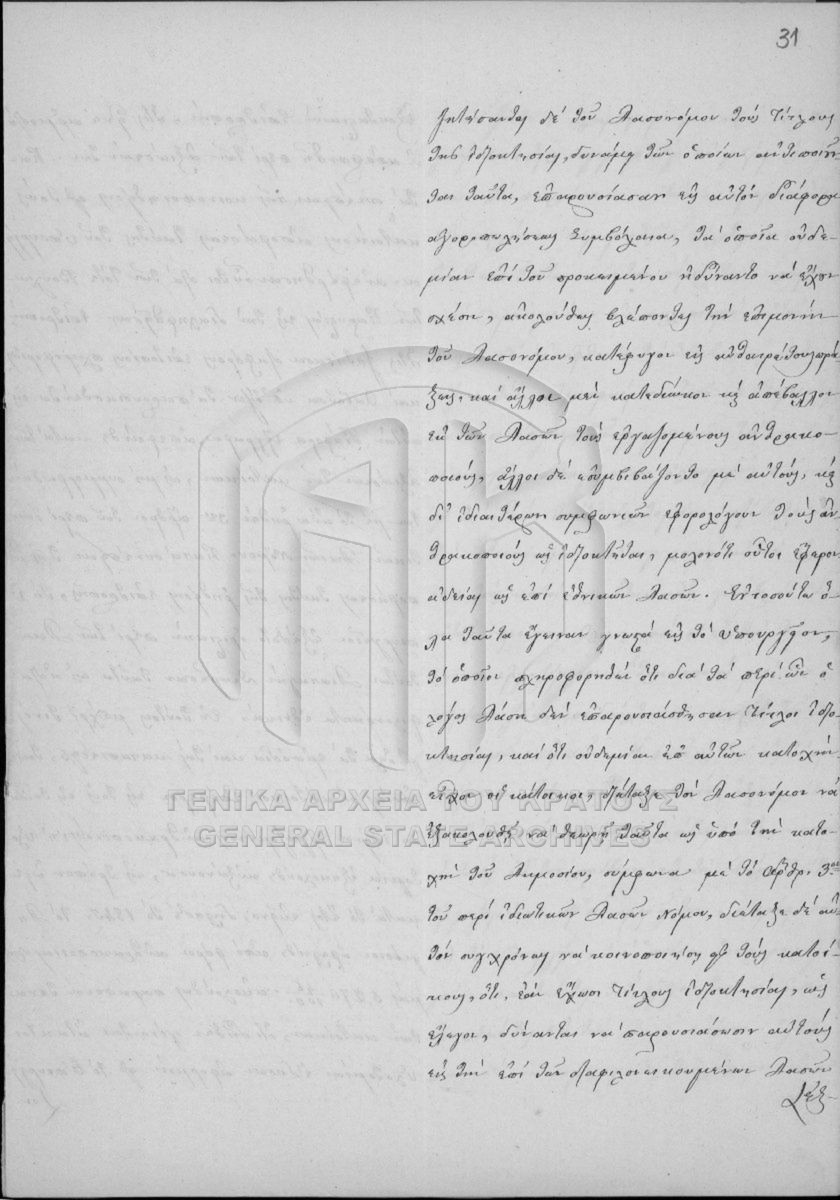 31
ζητήσαντος δὲ τοῦ Δασονόμου τοὺς τίτλους
τῆς ἰδιοκτησίας, δυνάμει τῶν ὁποίων αὐθεποιοῦν-
ται ταῦτα, ἐπαρουσίασαν εἰς αὐτὸν διάφορα
ἀγοροπωλήσεως συμβόλαια, τὰ ὁποῖα οὐδε-
μίαν ἐπὶ τοῦ προκειμένου ἠδύναντο νὰ ἔχωσι
σχέσιν, ἀκολούθως βλέποντες τὴν ἐπιμονὴν
τοῦ Δασονόμου, κατέφυγον εἰς αὐθαιρέτους πρά-
ξεις, καὶ ἄλλοι μὲν κατεδίωκον κ ἀπέβαλλον
ἐκ τῶν Δασῶν τοὺς ἐργαζομένους ἀνθρακο-
ποιούς, ἄλλοι δὲ ἐσυμβιβάζοντο μὲ αὐτούς, κ
δι' ἰδιαιτέρων συμφωνιῶν ἐφορολόγουν τοὺς ἀν-
θρακοποιοὺς ὡς ἰδιοκτῆται, μολονότι οὗτοι ἔφερον
ἀδείας ὡς ἐπὶ ἐθνικῶν Δασῶν. Ἐντοσούτῳ ὅ-
λα ταῦτα ἔγειναν γνωστὰ εἰς τὸ Ὑπουργεῖον,
τὸ ὁποῖον πληροφορηθὲν ὅτι διὰ τὰ περὶ ὧν ὁ
λόγος Δάση δὲν ἐπαρουσιάσθησαν τίτλοι ἰδιο-
κτησίας, καὶ ὅτι οὐδεμίαν ἐπ' αὐτῶν κατοχὴν
εἶχον οἱ κάτοικοι, διέταξε τὸν Δασονόμον νὰ
ἐξακολουθῇ νὰ θεωρῇ ταῦτα ὡς ὑπὸ τὴν κατο-
χὴν τοῦ Δημοσίου, σύμφωνα μὲ τὸ ἄρθρ. 3ον
τοῦ περὶ ἰδιωτικῶν Δασῶν Νόμου, διέταξε δὲ αὐ-
τὸν συγχρόνως νὰ κοινοποιήσῃ πρὸς τοὺς κατοί-
κους, ὅτι, ἐὰν ἔχωσι τίτλους ἰδιοκτησίας, ὡς
ἔλεγον, δύνανται νὰ παρουσιάσωσιν αὐτοὺς
εἰς τὴν ἐπὶ τῶν διαφιλονεικουμένων Δασῶν
ΓΕΝΙΚΑ ΑΡΧΕΙΑ ΤΟΥ ΚΡΑΤΟΥΣ
GENERAL STATE ARCHIVES